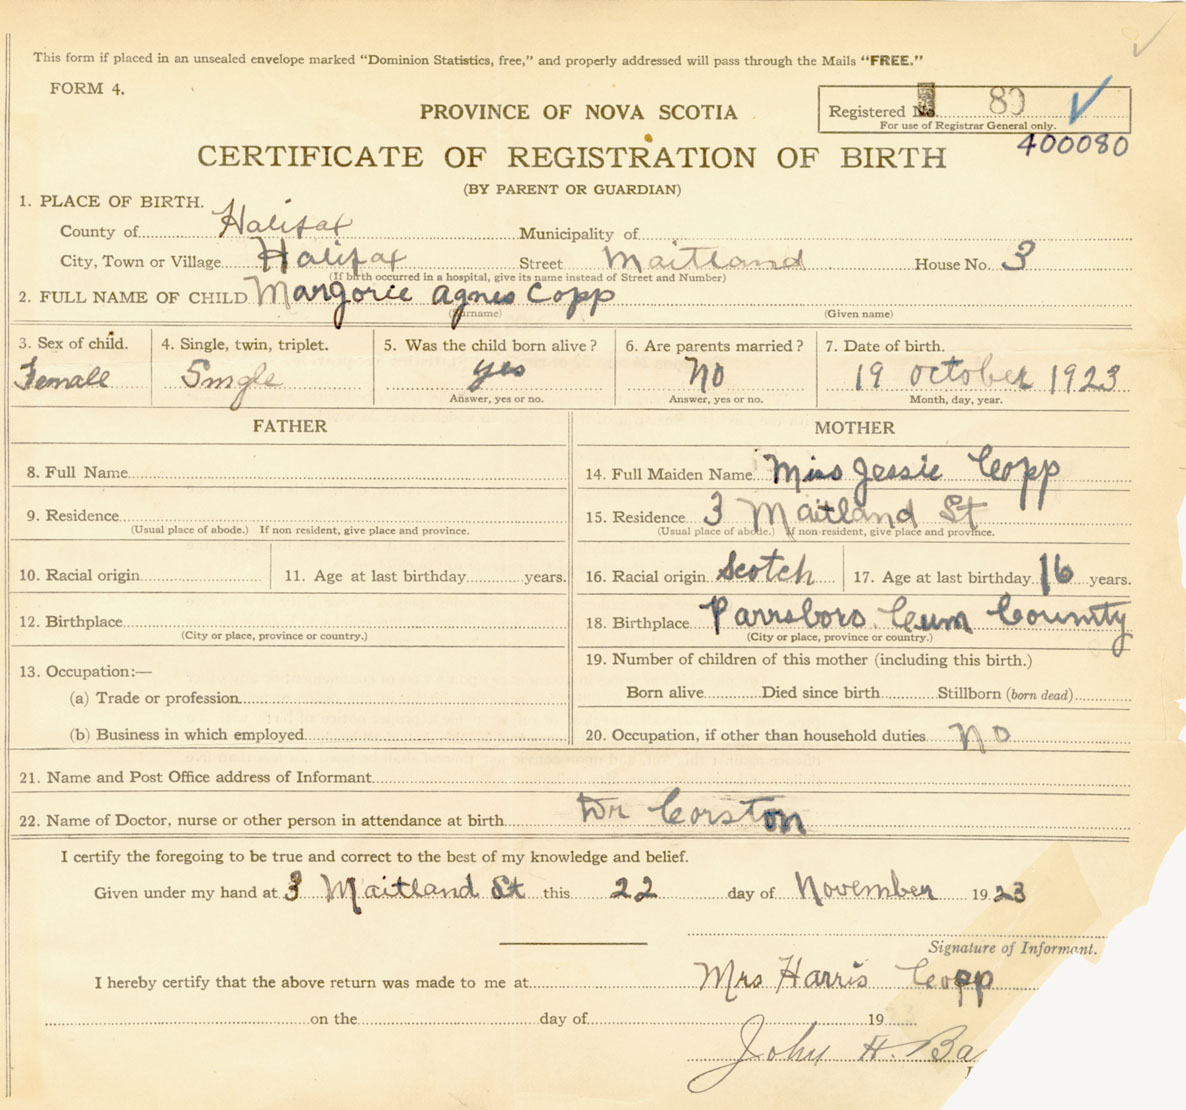 This form if placed in an unsealed envelope marked "Dominion Statistics, free," and properly addressed will pass through the Mails "FREE."
FORM 4.
PROVINCE OF NOVA SCOTIA
Registered No. 80
For use of Registrar General only.
400080
CERTIFICATE OF REGISTRATION OF BIRTH
(BY PARENT OR GUARDIAN)
1. PLACE OF BIRTH.
County of Halifax Municipality of
City, Town or Village Halifax Street Maitland House No. 3
(If birth occurred in a hospital, give its name instead of Street and Number)
2. FULL NAME OF CHILD Margorie Agnes Copp
(Surname) (Given name)
3. Sex of child. 4. Single, twin, triplet. 5. Was the child born alive? 6. Are parents married? 7. Date of birth.
Female Single yes No 19 October 1923
Answer, yes or no. Answer, yes or no. Month, day, year.
FATHER MOTHER
8. Full Name 14. Full Maiden Name Miss Jessie Copp
9. Residence 15. Residence 3 Maitland St
(Usual place of abode.) If non resident, give place and province. (Usual place of abode.) If non-resident, give place and province.
10. Racial origin 11. Age at last birthday years. 16. Racial origin Scotch 17. Age at last birthday 16 years.
12. Birthplace 18. Birthplace Parrsboro. Cum County
(City or place, province or country.) (City or place, province or country.)
13. Occupation:— 19. Number of children of this mother (including this birth.)
(a) Trade or profession Born alive Died since birth Stillborn (born dead)
(b) Business in which employed 20. Occupation, if other than household duties No
21. Name and Post Office address of Informant
22. Name of Doctor, nurse or other person in attendance at birth Dr Corston
I certify the foregoing to be true and correct to the best of my knowledge and belief.
Given under my hand at 3 Maitland St this 22 day of November 1923
Signature of Informant.
I hereby certify that the above return was made to me at Mrs Harris Copp
on the day of 19
John H. Ba